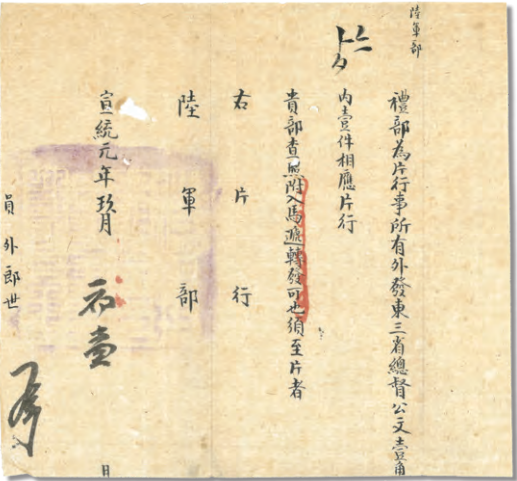 陸軍部
禮部為片行事所有外發東三省總督公文壹角
内壹件相應片行
貴部查照附入馬遞轉發可也須至片者
右片行
陸軍部
宣統元年玖月
初壹
日
員外郎世